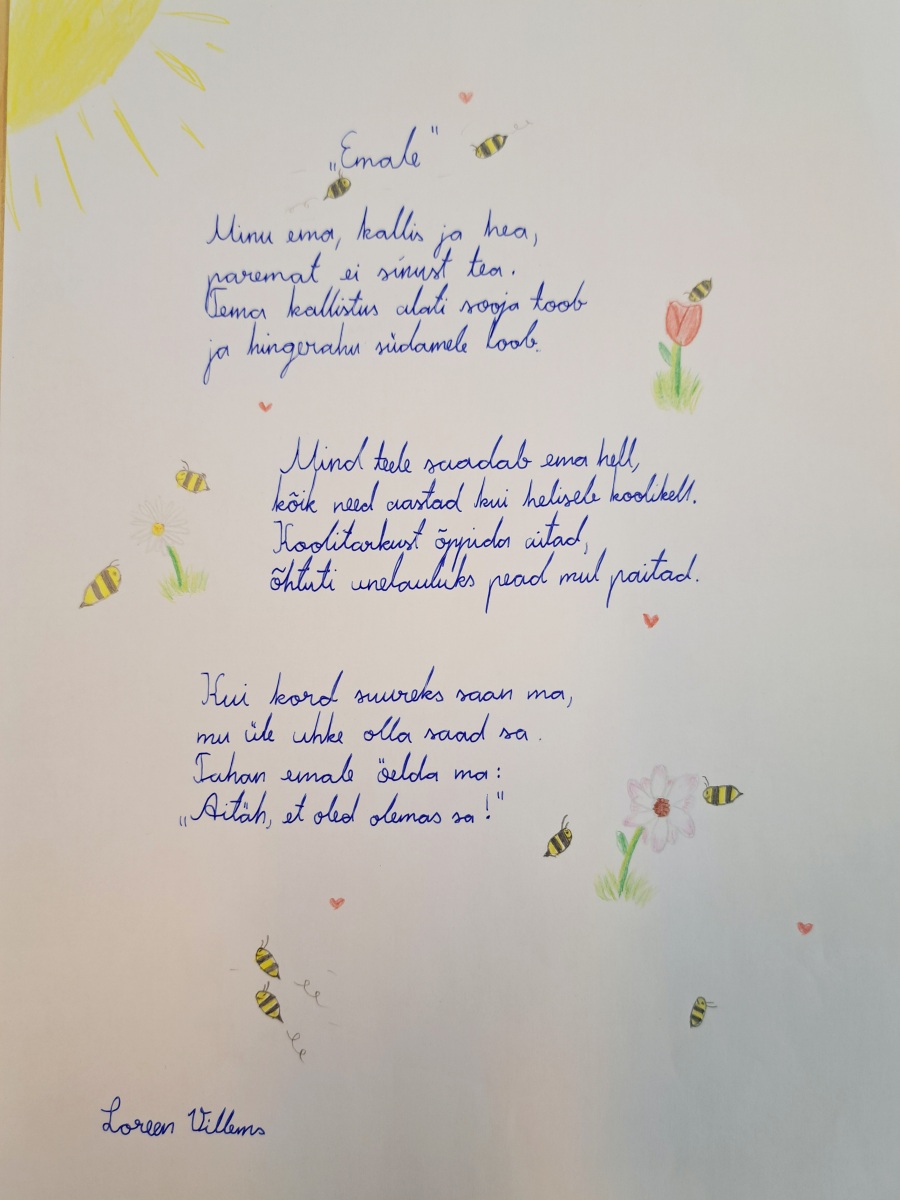 „Emale"
Minu ema, kallis ja hea,
paremat ei sinust tea.
Tema kallistus alati sooja toob
ja hingerahu südamele loob.
Mind teele saadab ema hell,
kõik need aastad kui heliseb koolikell.
Koolitarkust õppida aitad,
õhtuti unelauluks pead mul paitad.
Kui kord suureks saan ma,
mu üle uhke olla saad sa.
Tahan emale öelda ma:
„Aitäh, et oled olemas sa!"
Loreen Villems